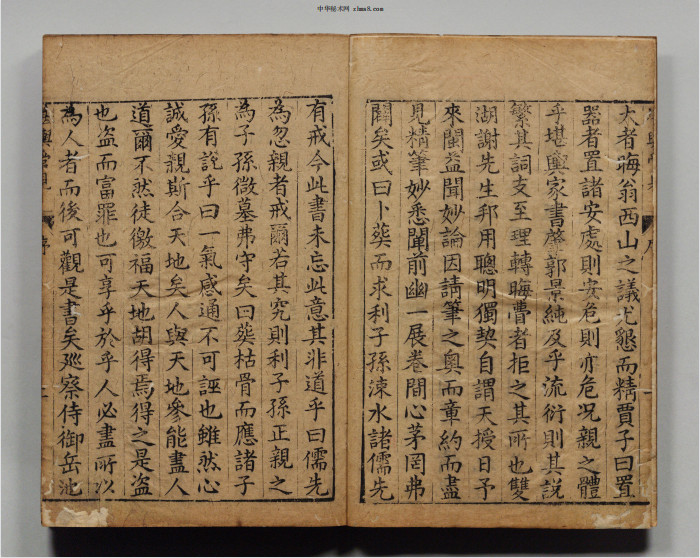 中华秘术网
大者晦翁西山之議尤懇而精賈子曰置
器者置諸安處則安危則亦危况親之體
乎堪輿家書肇郭景純及乎流衍則其說
繁其詞支至理轉晦曹者拒之其所也雙
湖謝先生邦用聰明獨契自謂天授日予
來閩益聞妙論因請筆之奥而章約而盡
見精筆妙悉闡前幽一展卷間心茅罔弗
闢矣或曰卜葬而求利子孫涑水諸儒先
有戒今此書未忘此意其非道乎曰儒先
為忽親者戒爾若其究則利子孫正親之
為子孫微墓弗守矣曰葬枯骨而應諸子
孫有說乎曰一氣感通不可誣也雖然心
誠愛親斯合天地矣人與天地參能盡人
道爾不然徒徼福天地胡得焉得之是盜
也盗而富罪也可享乎於乎人必盡所以
為人者而後可觀是書矣廵察侍御岳池
序